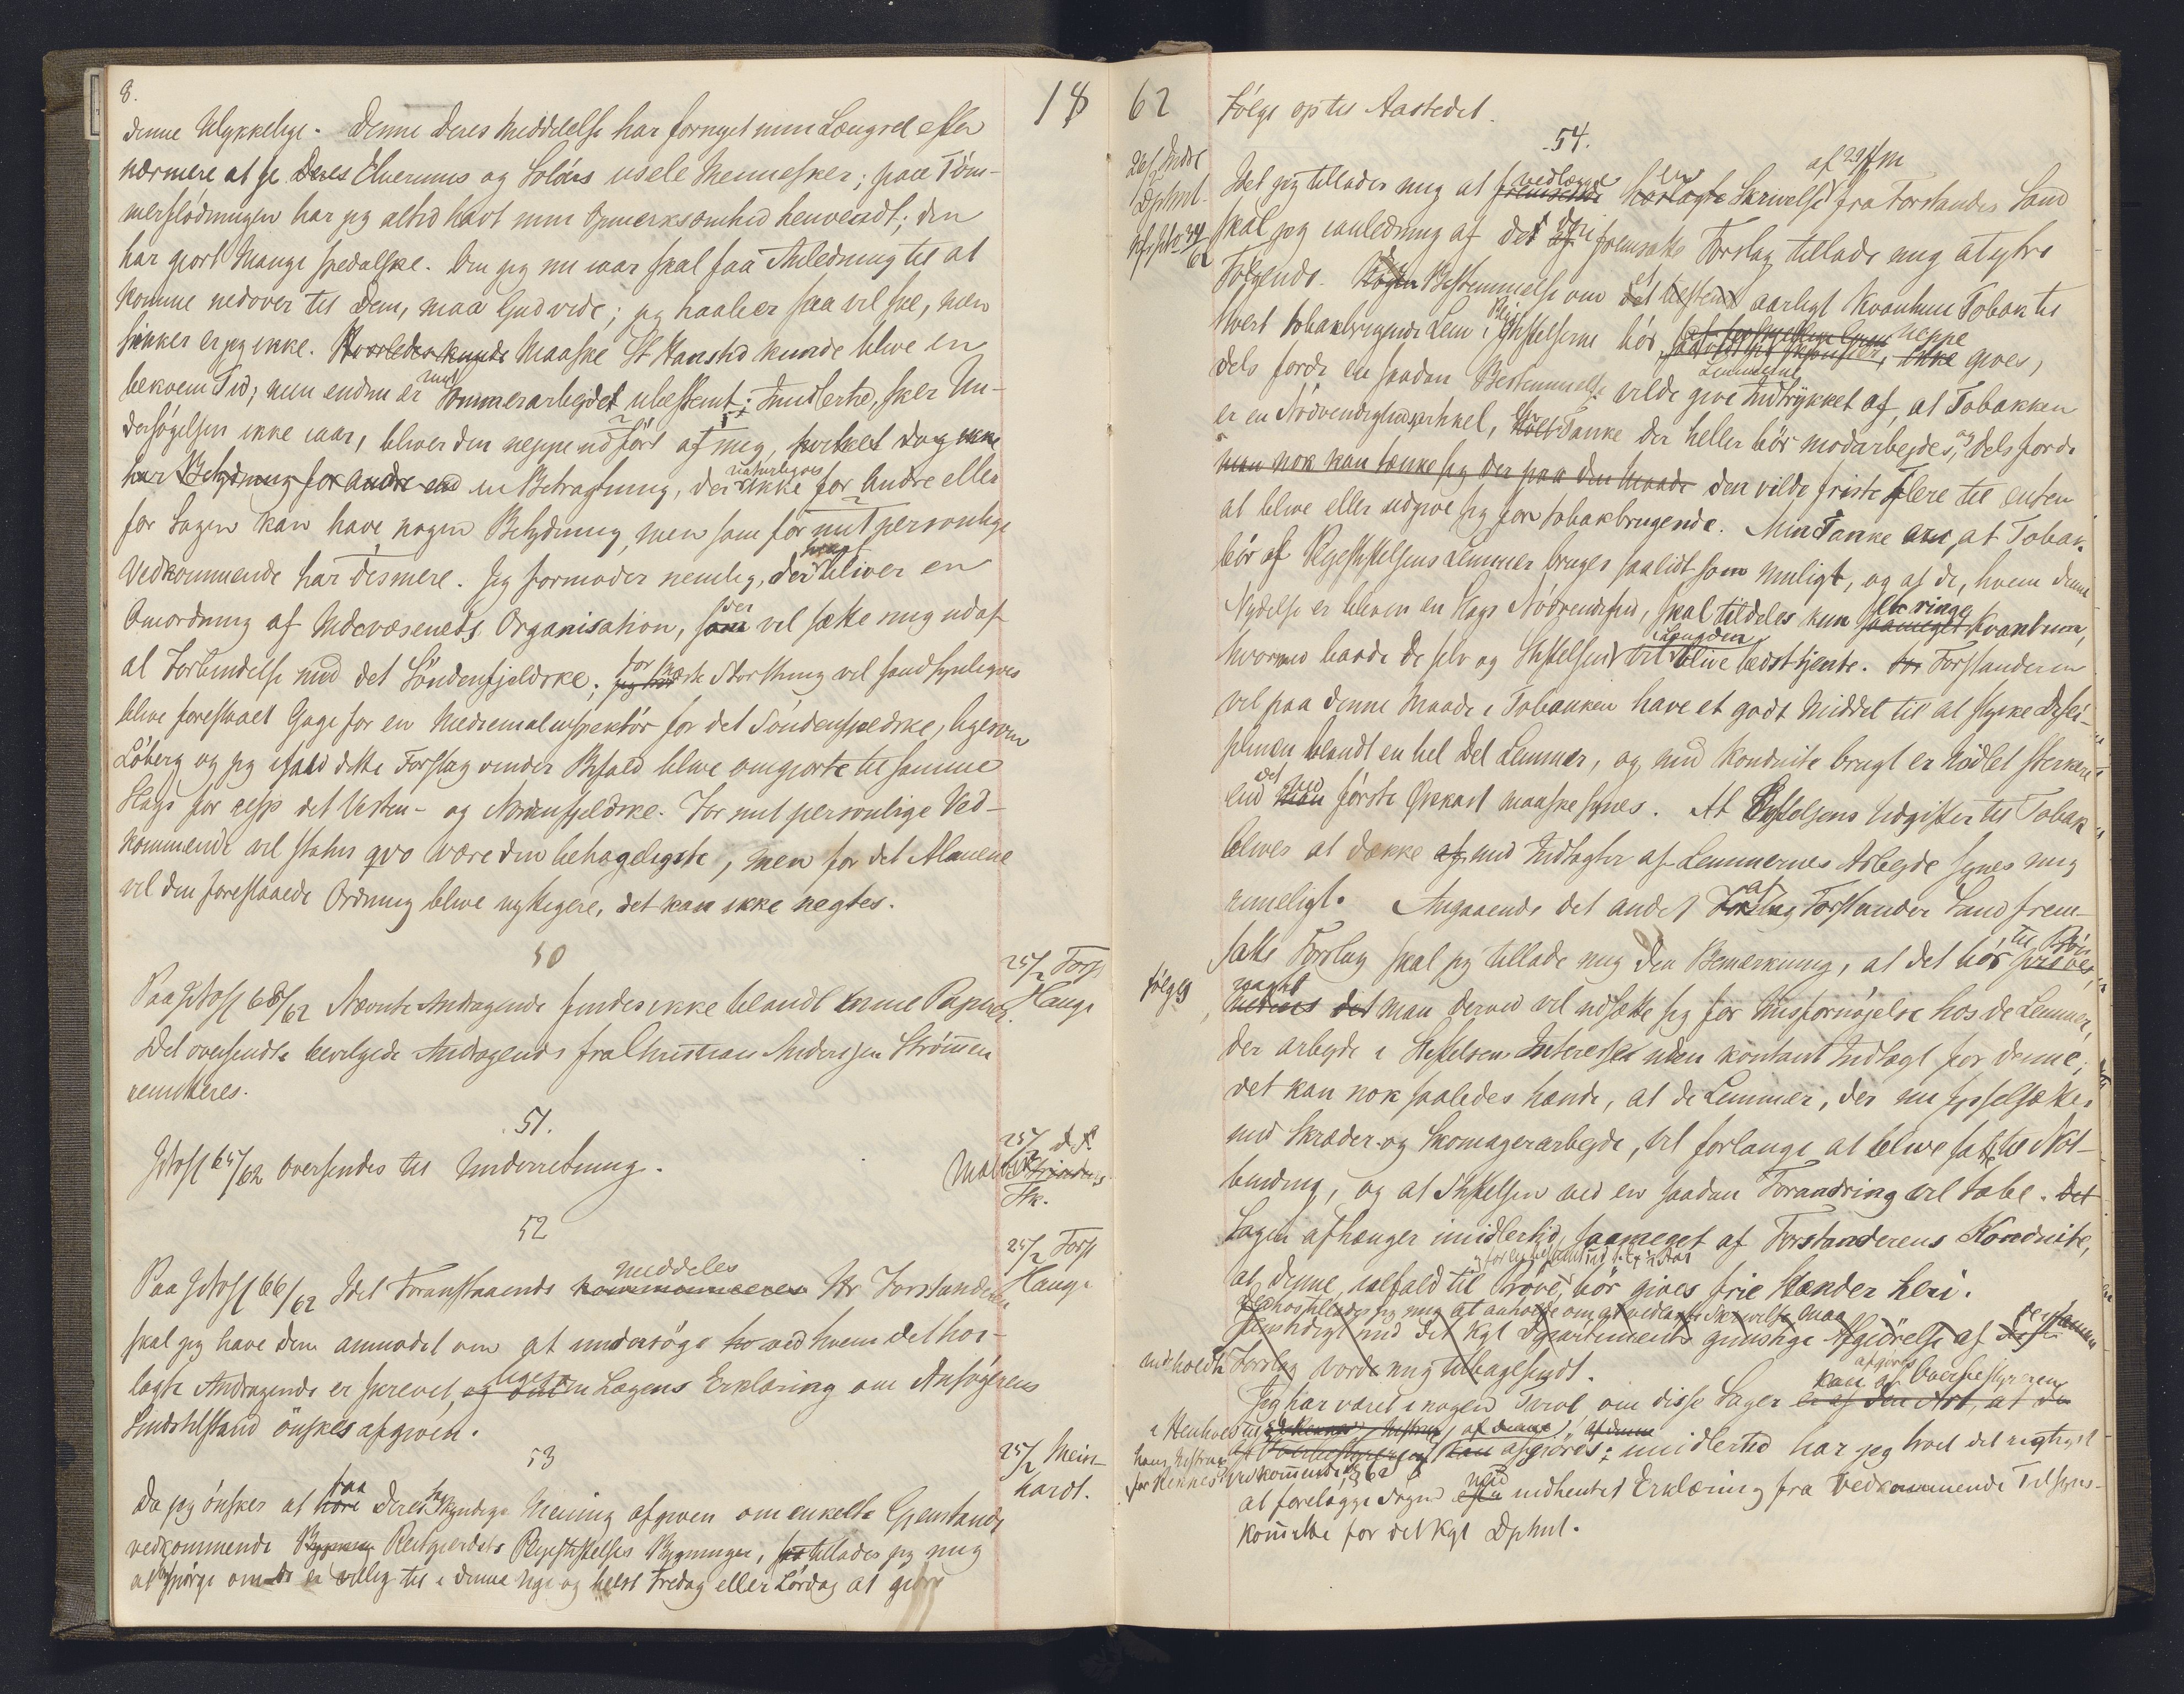 8.
18
denne Ulykkelige. Denne Deres Meddelelse har fornyet min Længsel efter
nærmere at se Deres Elverums og Solørs usele Mennesker; paa Töm-
merflödningen har jeg altid havt min Opmærksomhed henvendt; den
har gjort Mange spedalske. Om jeg nu iaar skal faa Anledning til at
komme nedover til Dem, maa Gud vide; jeg haaber saa vil ske, men
sikker er jeg ikke. Hvorledes kunde Maaske St Hanstid kunde blive en
bekvem Tid; men endnu er mit Sommerarbejdet ubestemt; Imidlertid, sker Un-
dersögelsen ikke iaar, bliver den neppe udfört af mig, hvilket dog ikke
har Betydning for andre end en Betragtning, der naturligvis ikke for Andre eller
for Sagen kan have nogen Betydning, men som for mit personlige
Vedkommende har desmere. Jeg formoder nemlig, der bliver en
Omordning af Medicinalvæsenets Organisation, som der vil sætte mig ud af
al Forbindelse med det Söndenfjeldske; jeg har for næste Storthing vil sandsynligvis
blive foreslaaet Gage for en Medicinalinspektör for det Söndenfjeldske, ligesom
Löberg og jeg ifald dette Forslag vinder Bifald blive omgjorte til samme
Slags for resp det Vesten- og Nordenfjeldske. For mit personlige Ved-
kommende vil status qvo være den behageligste, men for det Almene
vil den foreslaaede Ordning blive nyttigere, det kan ikke negtes.
50
25/2 Forst Hauge
Paa 68/62 Nævnte Andragende findes ikke blandt mine Papirer.
Det oversendte bevilgede Andragende fra Christian Andersen Strömmen
remitteres.
51.
25/2
65/62 oversendes til Underretning.
52
25/2 Forst Hauge
Paa 66/62 Idet Foranstaaende kommuniceres meddeles Hr Forstanderen
skal jeg have Dem anmodet om at undersöge ho ved hvem det hos-
lagte Andragende er skrevet, ligesom Lægens Erklæring om Ansögerens
Sindstilstand önskes afgiven.
53
25/2 Mein-
hardt.
Da jeg önsker at höre faa Deres sagkyndige Mening afgiven om enkelte Gjenstande
vedkommende Reitgjerdets Plejestiftelses Bygninger, saa tillader jeg mig
at spörge om De er villig til i denne Uge og helst Fredag eller Lördag at gjöre
62
Fölge op til Aastedet.
54.
26/2 Indre
Dpmt.
Idet jeg tillader mig at fremsende vedlægge hoslagte en Skrivelse af 29 fra Forstander Sand
skal jeg ianledning af det deri fremsatte Forslag tillade mig at ytre
Fölgende. Nogen Bestemmelse om det et bestemt aarligt Kvantum Tobak til
hvert tobakbrugende Lem i Stiftelserne bör neppe ikke gives,
dels fordi en saadan Bestemmelse vilde give Lemmerne Indtrykket af, at Tobakken
er en Nödvendighedsartikel, Tanke der heller bör modarbejdes, og dels fordi
man nok kan tænke sig der paa den Maade den vilde friste Flere til enten
at blive eller udgive sig for tobakbrugende. Min Tanke er, at Tobak
bör af Plejestiftelsens Lemmer bruges saalidt som muligt, og at de, hvem denne
Nydelse er bleven en Slags Nödvendighed, skal tildeles kun saameget et ringe Kvantum,
hvormed baade de selv og Stiftelsen i Længden vil blive bedst tjente. Forstanderen
vil paa denne Maade i Tobakken have et godt Middel til at styrke Disci-
plinen blandt en hel Del Lemmer, og med Konduite brugt er Midlet sterkere
end det ved förste Öjekast maaske synes. At Stiftelsens Udgifter til Tobak
blives at dække af med Indtægter af Lemmernes Arbejde synes mig
rimeligt. Angaaende det andet Forslag af Forstander Sand frem-
satte Forslag skal jeg tillade mig den Bemærkning, at det bör til Pröve
fölges
det man derved vil udsætte sig for Misfornöjelse hos de Lemmer,
der arbejde i Stiftelsens Interesse uden kontant Indtægt for denne;
det kan nok saaledes hænde, at de Lemmer, der nu sysselsættes
med Skræder- og Skomagerarbejde, vil forlange at blive satte til Not-
binding, og at Stiftelsen ved en saadan Forandring vil tabe. Det
Sagen afhænger imidlertid saameget af Forstanderens Konduite,
at denne, ialfald til Pröve, bör gives frie Hænder heri.
Derhos tillader jeg mig at anholde om at vedlagte Skrivelse maa
samtidigt med det kgl Departements gunstige Afgjörelse af
indholdte Forslag vorde mig tilbagesendt.
Jeg har været i nogen Tvivl om disse Sager er af den Art, at de kan af Overbestyreren
afgjöres; imidlertid har jeg troet det rigtigst
for Rekneds Vedkommende
at forelægge Sagen efter nedhentet Erklæring fra Vedkommende Tilsyns-
komitee for det kgl Dpmt.